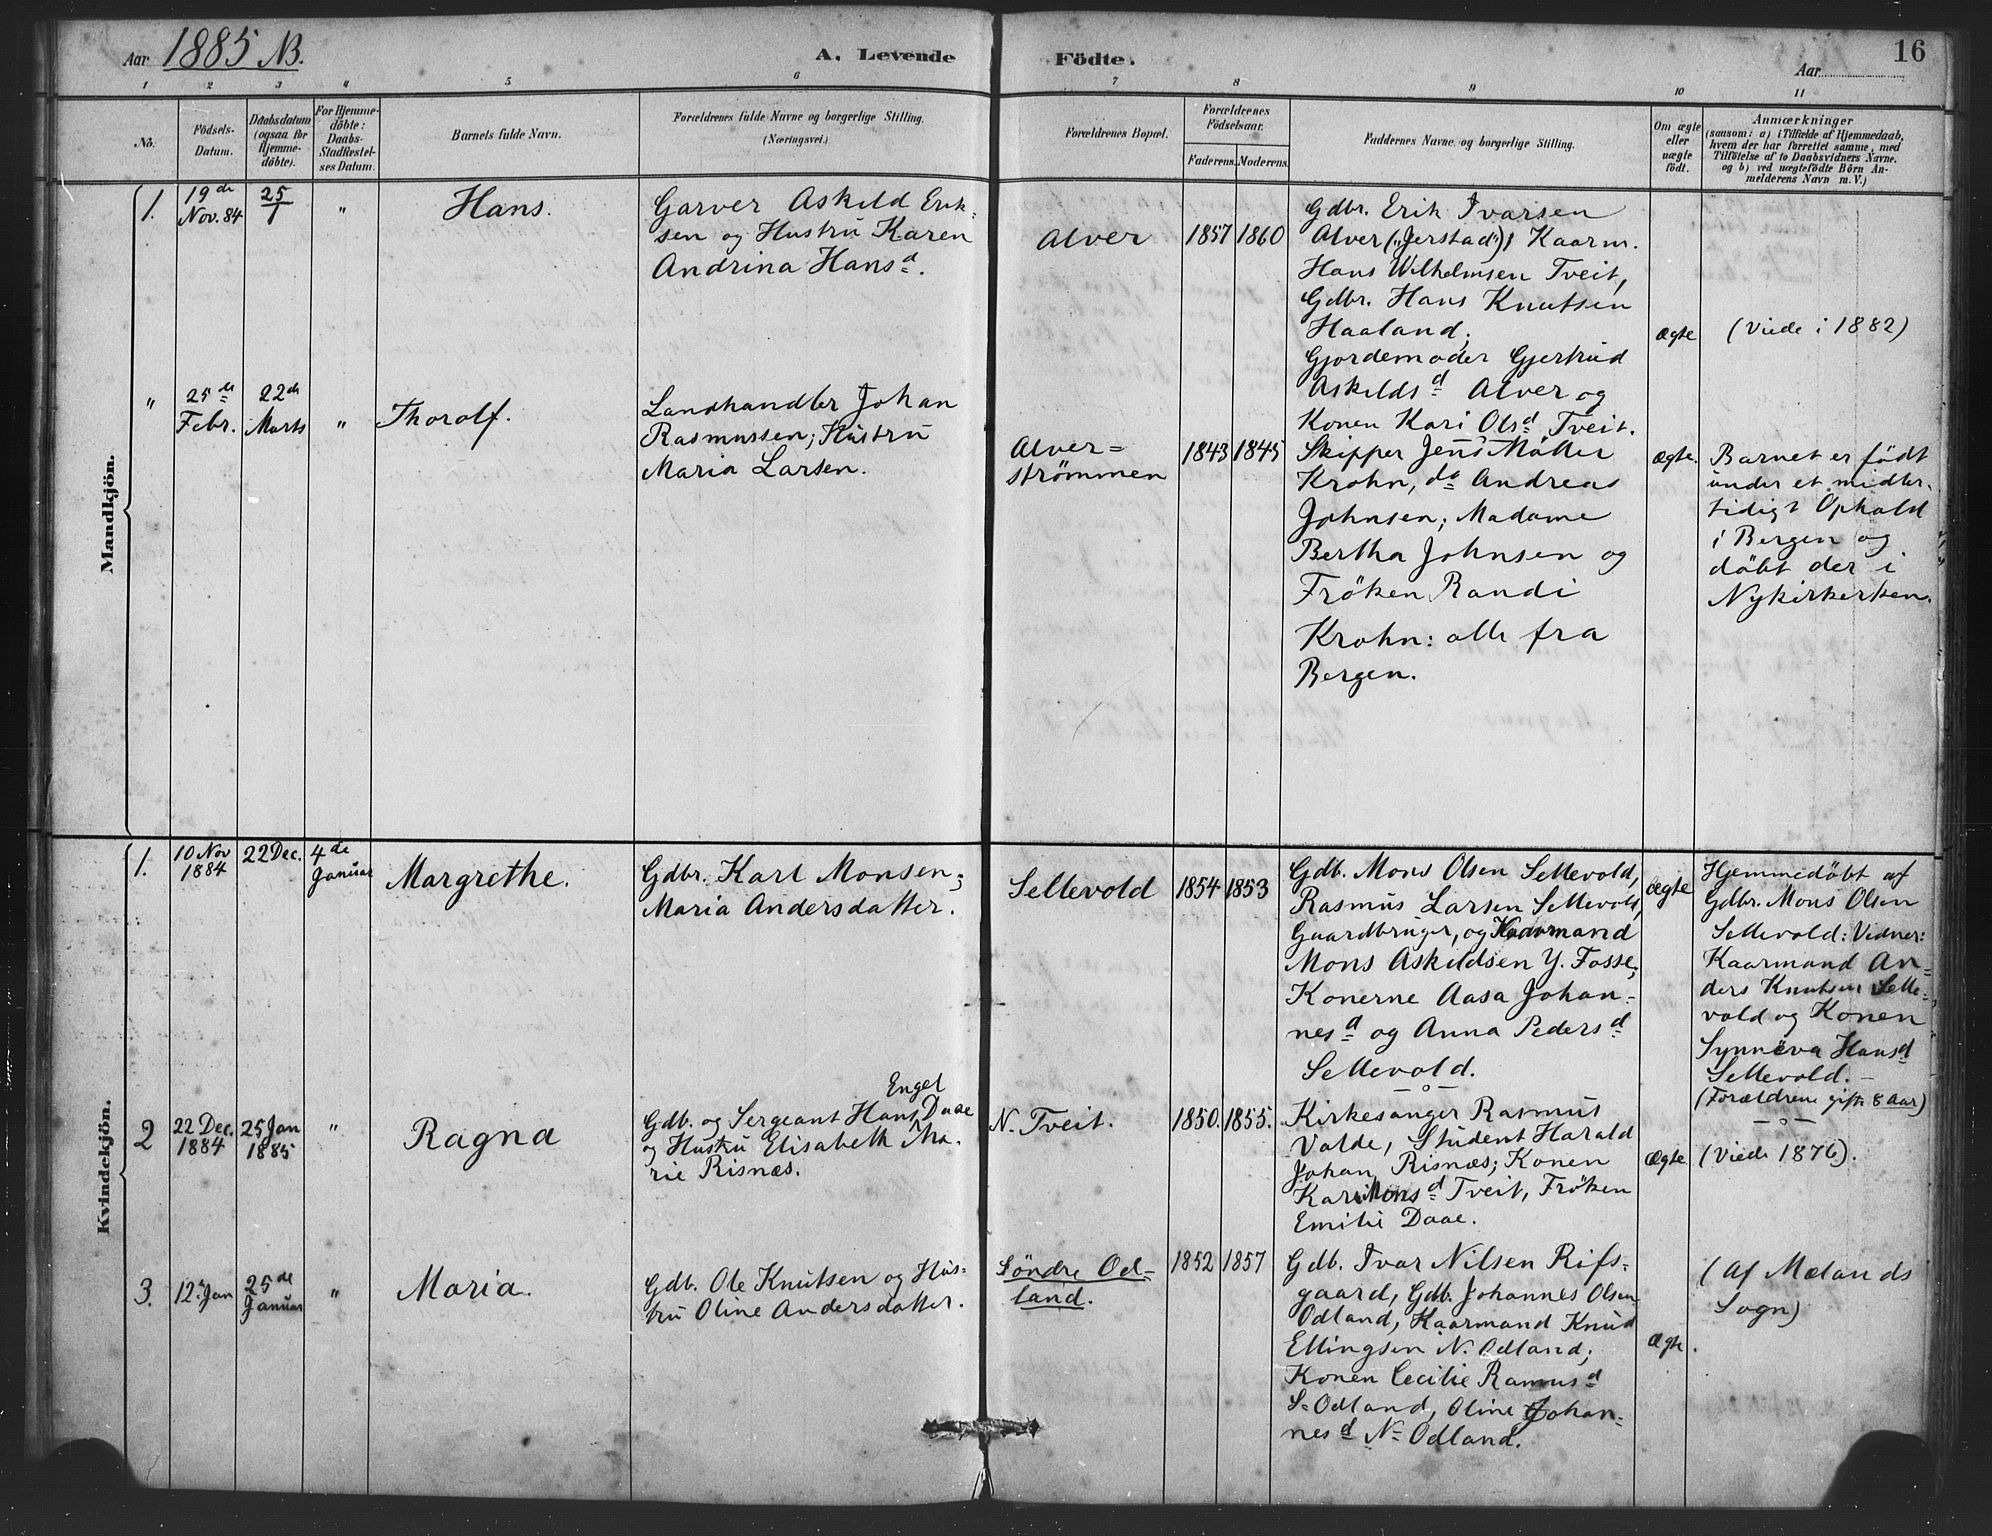 Aar 1885 NB.
A. Levende Födte.
Aar
16
1 2 3 4 5 6 7 8 9 10 11
No.
Födsels-
Datum.
Daabsdatum
(ogsaa for
Hjemme-
döbte).
For Hjemme-
döbte:
Daabs-
Stadfæstel-
ses Datum.
Barnets fulde Navn.
Forældrenes fulde Navne og borgerlige Stilling.
(Næringsvei.)
Forældrenes Bopæl.
Forældrenes
Födselsaar.
Faderens.
Moderens.
Faddernes Navne og borgerlige Stilling.
Om ægte
eller
uægte
födt.
Anmærkninger
(saasom: a) i Tilfælde af Hjemmedaab,
hvem der har forrettet samme, med
Tilföielse af to Daabsvidners Navne.
og b) ved uægtefödte Börn An-
melderens Navn m. V.)
Mandkjön.
1.
19de
Nov. 84
25
1
"
Hans.
Garver Askild Erik-
sen og Hustru Karen
Andrina Hansd.
Alver
1857
1860
Gdbr. Erik Ivarsen
Alver („Jerstad"), Kaarm.
Hans Wilhelmsen Tveit,
Gdbr. Hans Knutsen
Haaland;
Gjordemoder Gjertrud
Askildsd Alver og
Konen Kari Olsd Tveit.
ægte
(Viede i 1882)
"
25de
Febr.
22de
Marts
"
Thorolf.
Landhandler Johan
Rasmussen; Hustru
Maria Larsen.
Alver=
strömmen
1843
1845
Skipper Jens Möller
Krohn, do Andreas
Johnsen; Madame
Bertha Johnsen og
Fröken Randi
Krohn: alle fra
Bergen.
ægte.
Barnet er födt
under et midler-
tidigt Ophold
i Bergen og
döbt der i
Nykirkerken.
Kvindekjön.
1.
10 Nov
1884
22 Dec.
4de
Januar
Margrethe.
Gdbr. Karl Monsen;
Maria Andersdatter.
Sellevold
1854
1853
Gdb. Mons Olsen Sellevold,
Rasmus Larsen Sellevold,
Gaardbruger, og Kaarmand
Mons Askildsen Y. Fosse;
Konerne Aasa Johan-
nesd og Anna Pedersd
Sellevold.
ægte
Hjemmedöbt af
Gdbr. Mons Olsen
Sellevold: Vidner:
Kaarmand An=
ders Knutsen Selle-
vold og Konen
Synnöva Hansd
Sellevold.
(Forældrene gifte 8 Aar)
2
22 Dec.
1884
25 Jan
1885
"
Ragna
Engel
Gdb. og Sergeant Hans Daae
og Hustru Elisabeth Ma-
rie Risnæs.
N. Tveit.
1850.
1855.
Kirkesanger Rasmus
Valde, Student Harald
Johan Risnæs; Konen
Kari Monsd Tveit, Fröken
Emilie Daae.
ægte
(Viede 1876).
3.
12. Jan
25de
Januar
"
Maria.
Gdb. Ole Knutsen og Hus-
tru Oline Andersdatter.
Söndre Od-
land.
1852
1857
Gdb. Ivar Nilsen Rifs-
gaard, Gdb. Johannes Olsen
Odland, Kaarmand Knud
Ellingsen N. Odland;
Konen Cecilie Rasmusd
S. Odland, Oline Johan-
nesd N. Odland.
ægte.
(Af Mælands
Sogn)